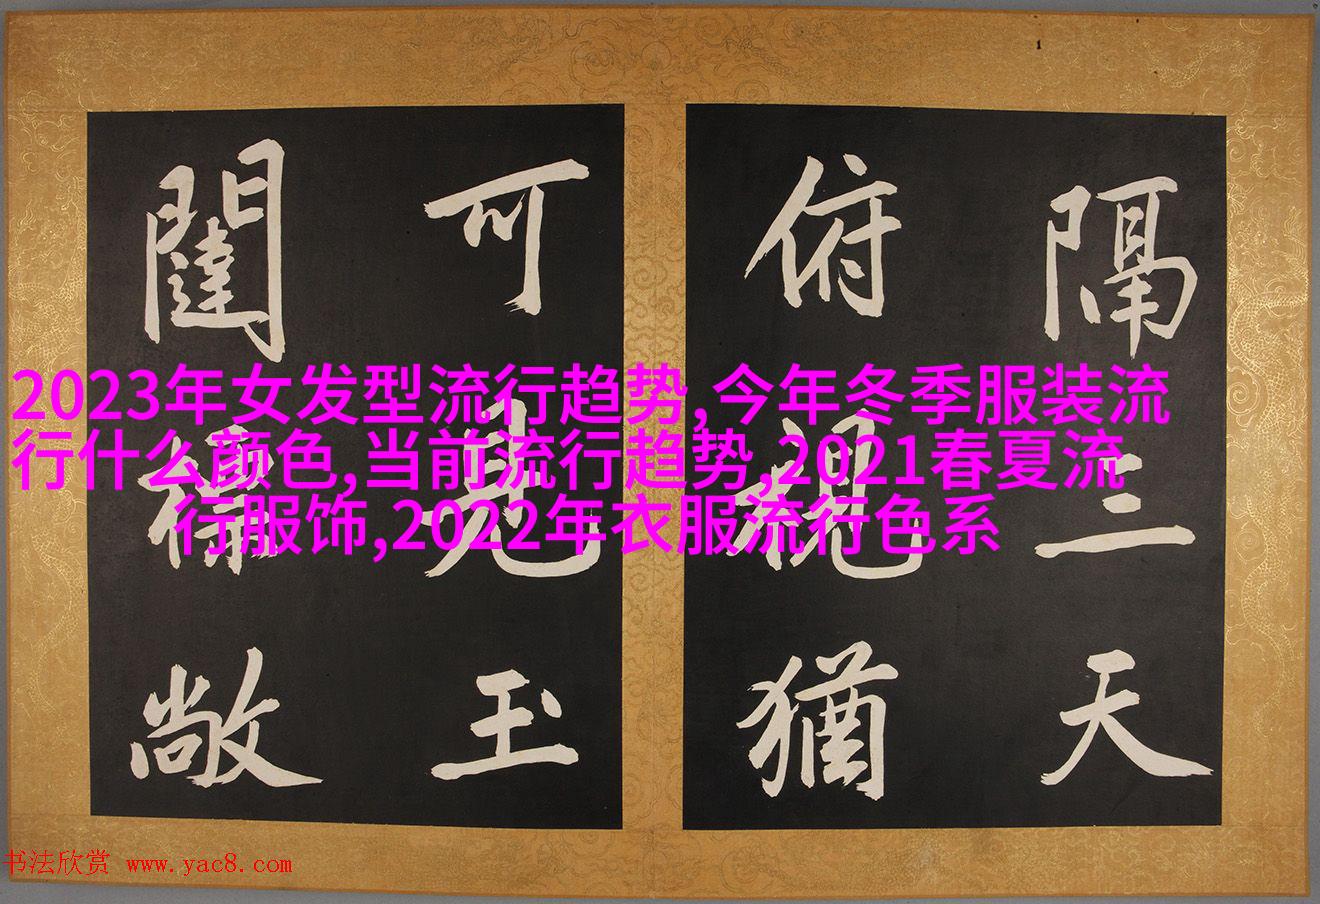 隔三天
俯視猶
可見玉
闥
敞
2023年女发型流行趋势,今年冬季服装流
行什么颜色,当前流行趋势,2021春夏流
行服饰,2022年衣服流行色系
书法欣赏 www.yac8.com